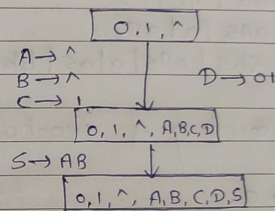 0, 1, ^
A → ^
B → ^
C → 1
D → 01
0, 1, ^, A, B, C, D
S → AB
0, 1, ^, A, B, C, D, S